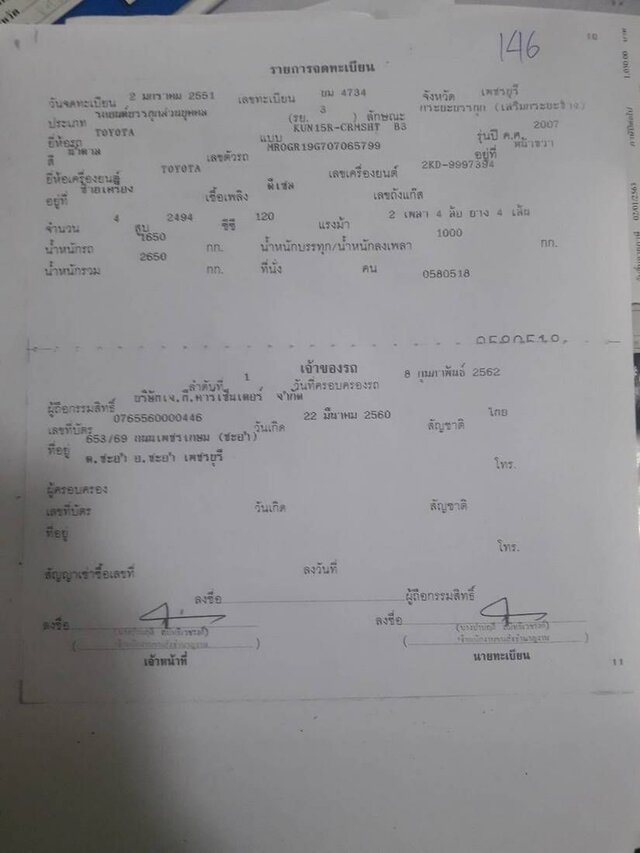 146
10
รายการจดทะเบียน
วันจดทะเบียน 2 มกราคม 2551 เลขทะเบียน ยม 4734 จังหวัด เพชรบุรี
ประเภท รถยนต์บรรทุกส่วนบุคคล (รย. 3 ) ลักษณะ กระบะบรรทุก (เสริมกระบะข้าง)
ยี่ห้อรถ TOYOTA แบบ KUN15R-CRMSHT B3 รุ่นปี ค.ศ. 2007
สี น้ำตาล เลขตัวรถ MR0GR19G707065799 อยู่ที่ หน้าขวา
ยี่ห้อเครื่องยนต์ TOYOTA เลขเครื่องยนต์ 2KD-9997394
อยู่ที่ ซ้ายเครื่อง เชื้อเพลิง ดีเซล เลขถังแก๊ส
จำนวน 4 สูบ 2494 ซีซี 120 แรงม้า 2 เพลา 4 ล้อ ยาง 4 เส้น
น้ำหนักรถ 1650 กก. น้ำหนักบรรทุก/น้ำหนักลงเพลา 1000 กก.
น้ำหนักรวม 2650 กก. ที่นั่ง คน 0580518
เจ้าของรถ
ลำดับที่ 1 วันที่ครอบครองรถ 8 กุมภาพันธ์ 2562
ผู้ถือกรรมสิทธิ์ บริษัทเจ.ที.คาร์เซ็นเตอร์ จำกัด
เลขที่บัตร 0765560000446 วันเกิด 22 มีนาคม 2560 สัญชาติ ไทย
ที่อยู่ 653/69 ถนนเพชรเกษม (ชะอำ)
ต.ชะอำ อ.ชะอำ เพชรบุรี
โทร.
ผู้ครอบครอง
เลขที่บัตร วันเกิด สัญชาติ
ที่อยู่
โทร.
สัญญาเช่าซื้อเลขที่ ลงวันที่
ลงชื่อ ผู้ถือกรรมสิทธิ์
ลงชื่อ ลงชื่อ
เจ้าหน้าที่ นายทะเบียน
11